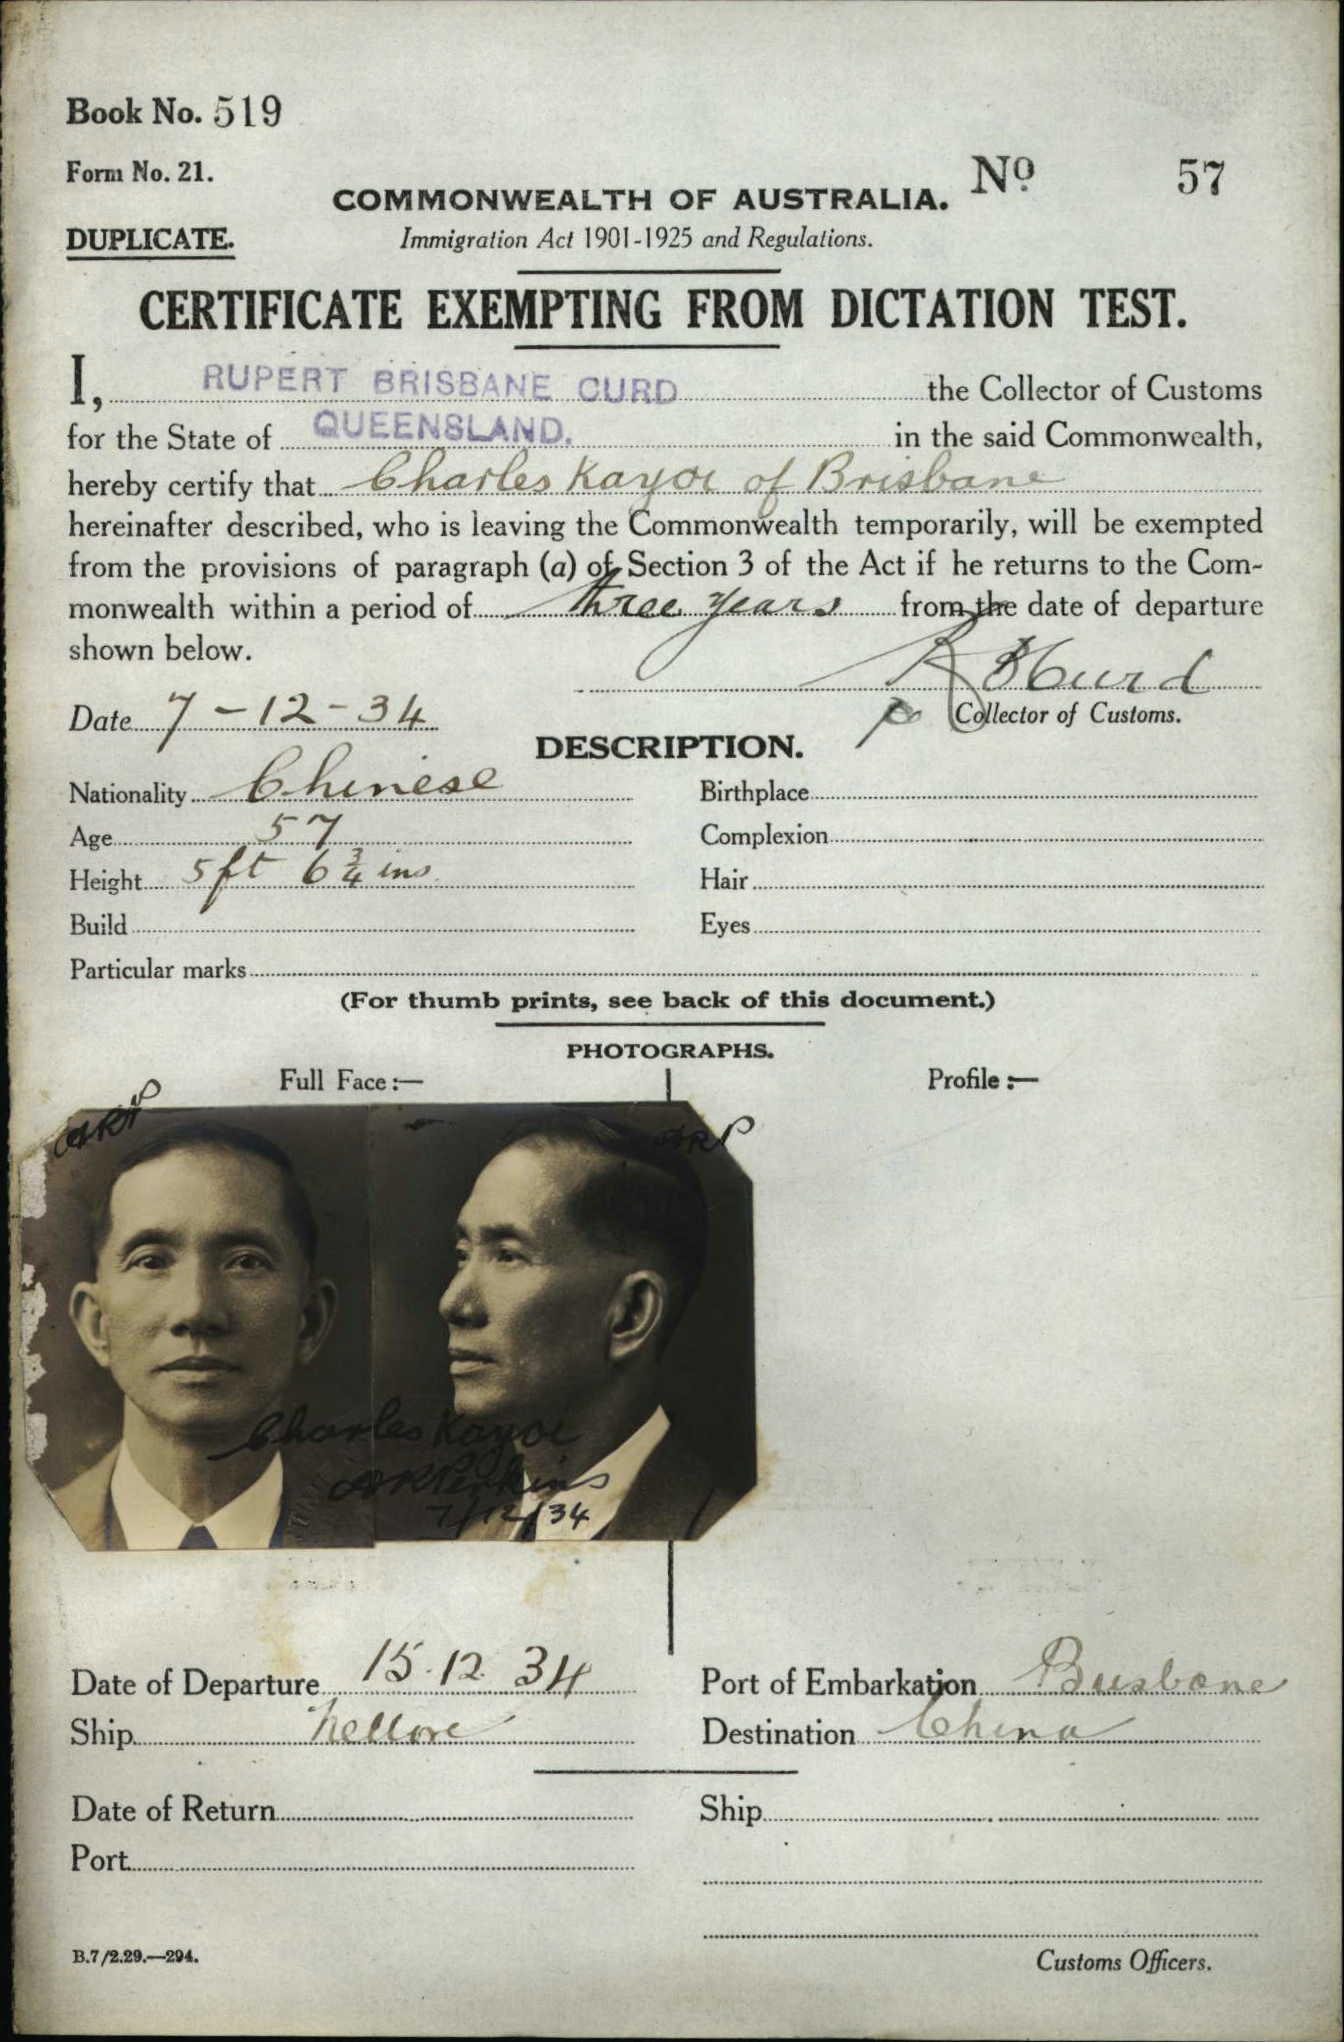 Book No. 519
Form No. 21.
No. 57
COMMONWEALTH OF AUSTRALIA.
DUPLICATE.
Immigration Act 1901-1925 and Regulations.
CERTIFICATE EXEMPTING FROM DICTATION TEST.
I, RUPERT BRISBANE CURD the Collector of Customs
for the State of QUEENSLAND. in the said Commonwealth,
hereby certify that Charles Kayoi of Brisbane
hereinafter described, who is leaving the Commonwealth temporarily, will be exempted
from the provisions of paragraph (a) of Section 3 of the Act if he returns to the Com-
monwealth within a period of three years from the date of departure
shown below.
R B Curd
Date 7-12-34
Collector of Customs.
DESCRIPTION.
Nationality Chinese
Birthplace
Age 57
Complexion
Height 5 ft 6 3/4 ins
Hair
Build
Eyes
Particular marks
(For thumb prints, see back of this document.)
PHOTOGRAPHS.
Full Face:—
Profile:—
ARP
ARP
Charles Kayoi
ARPerkins
7/12/34
Date of Departure 15.12.34
Port of Embarkation Brisbane
Ship Nellore
Destination China
Date of Return
Ship
Port
B.7/2.29.—294.
Customs Officers.